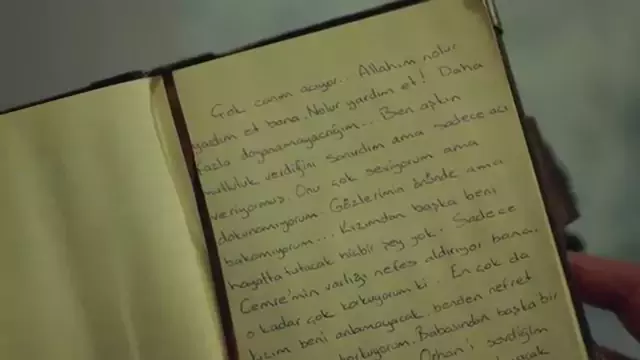 Çok canım acıyor... Allahım nolur
yardım et bana. Nolur yardım et! Daha
fazla dayanamayacağım... Ben aşkın
mutluluk verdiğini sanırdım ama sadece acı
veriyormuş. Onu çok seviyorum ama
dokunamıyorum. Gözlerimin önünde ama
bakamıyorum... Kızımdan başka beni
hayatta tutacak hiçbir şey yok. Sadece
Cemre'min varlığı nefes aldırıyor bana.
o kadar çok korkuyorum ki... En çok da
kızım beni anlamayacak, benden nefret
korkuyorum. Babasından başka bir
Orhan'ı sevdiğim